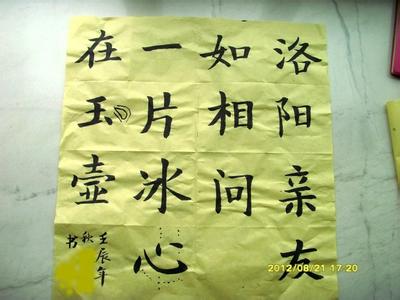 洛阳亲友
如相问
一片冰心
在玉壶
壬辰年
秋
书
2012/08/21 17:20